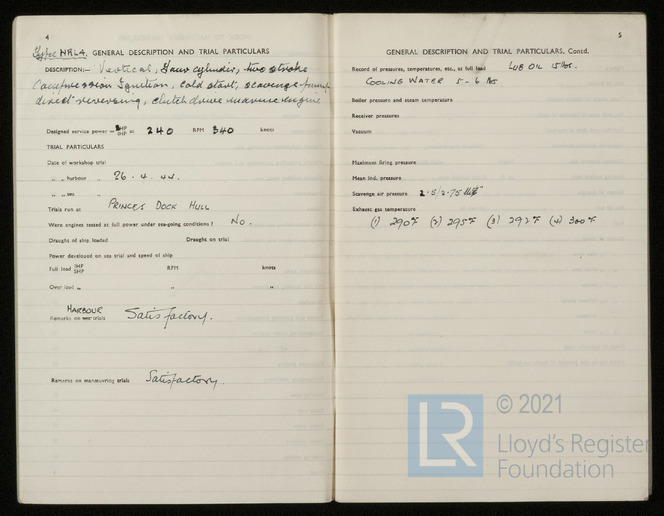 4
Type HRL4. GENERAL DESCRIPTION AND TRIAL PARTICULARS
DESCRIPTION:— Vertical, four cylinder, two stroke
Compression Ignition, cold start, scavenge pump,
direct reversing, clutch drive marine engine
Designed service power = BHP IHP at 240 RPM 340 knots
TRIAL PARTICULARS
Date of workshop trial
„ „ harbour „ 26.4.44.
„ „ sea „
Trials run at PRINCES DOCK HULL
Were engines tested at full power under sea-going conditions? No.
Draught of ship loaded Draught on trial
Power developed on sea trial and speed of ship
Full load IHP SHP RPM knots
Over load „ „ „
HARBOUR
Remarks on sea trials Satisfactory.
Remarks on manœuvring trials Satisfactory.
5
GENERAL DESCRIPTION AND TRIAL PARTICULARS, Contd.
Record of pressures, temperatures, etc., at full load LUB OIL 15 lbs.
COOLING WATER 5-6 lbs
Boiler pressure and steam temperature
Receiver pressures
Vacuum
Maximum firing pressure
Mean ind. pressure
Scavenge air pressure 2.5/2.75 lbs/□"
Exhaust gas temperature
(1) 290°F (2) 295°F (3) 292°F (4) 300°F
LR
© 2021
Lloyd's Register
Foundation